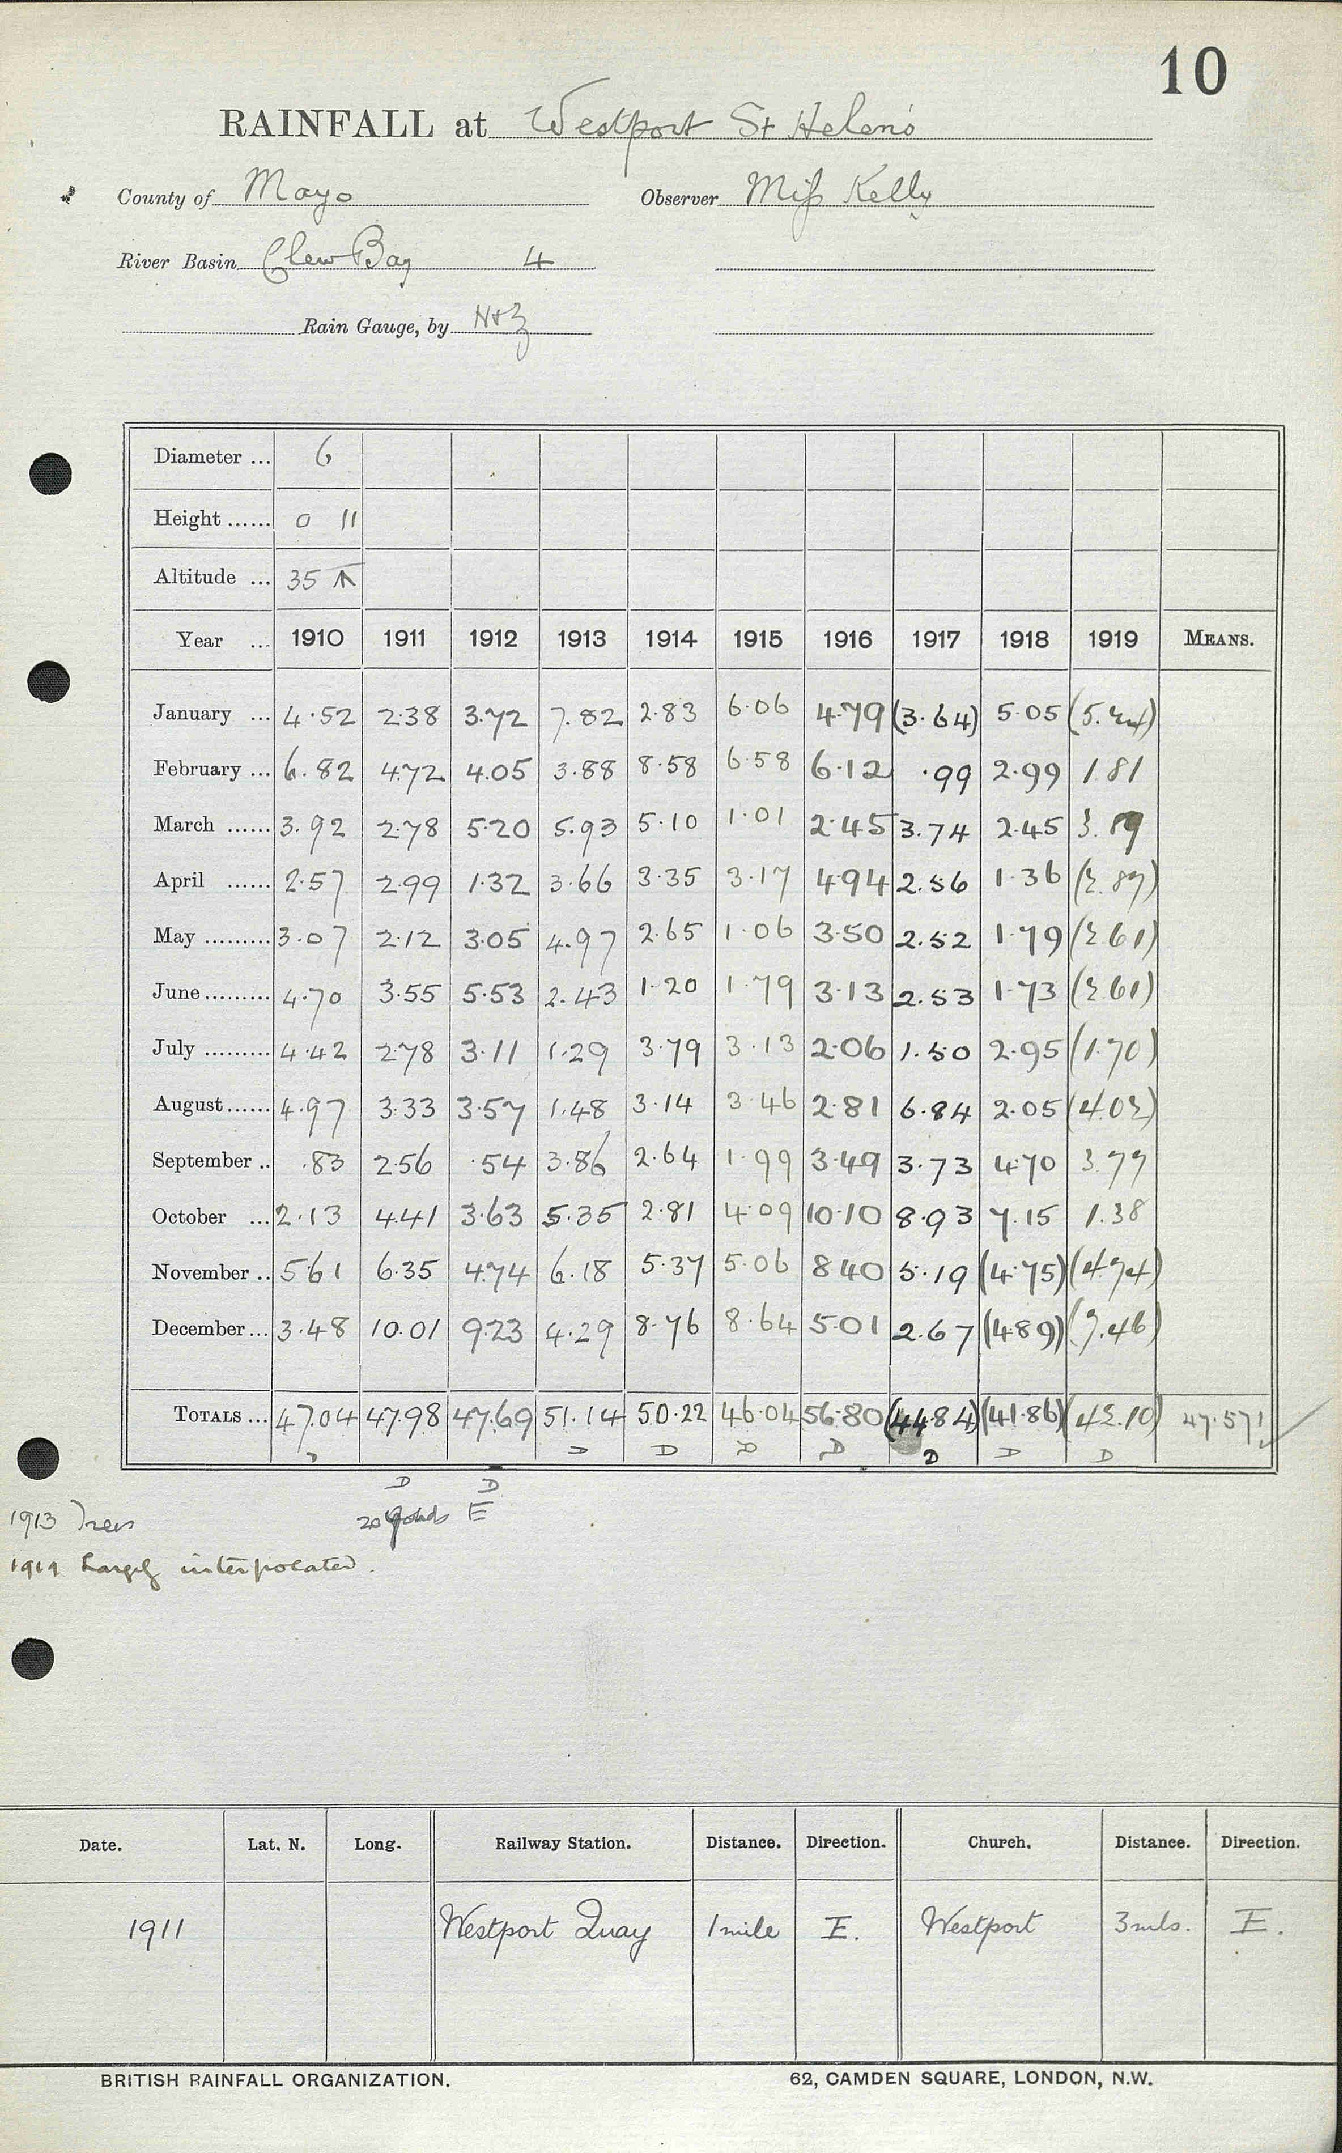 10
RAINFALL at Westport St Helens
County of Mayo Observer Miss Kelly
River Basin Clew Bay 4
Rain Gauge, by N&Z
Diameter ... 6
Height ...... 0 11
Altitude ... 35
Year ... 1910 1911 1912 1913 1914 1915 1916 1917 1918 1919 MEANS.
January ... 4.52 2.38 3.72 7.82 2.83 6.06 4.79 (3.64) 5.05 (5.24)
February ... 6.82 4.72 4.05 3.88 8.58 6.58 6.12 .99 2.99 1.81
March ...... 3.92 2.78 5.20 5.93 5.10 1.01 2.45 3.74 2.45 3.19
April ...... 2.57 2.99 1.32 3.66 3.35 3.17 4.94 2.56 1.36 (2.87)
May ......... 3.07 2.12 3.05 4.97 2.65 1.06 3.50 2.52 1.79 (2.61)
June ......... 4.70 3.55 5.53 2.43 1.20 1.79 3.13 2.53 1.73 (2.61)
July ......... 4.42 2.78 3.11 1.29 3.79 3.13 2.06 1.50 2.95 (1.70)
August ...... 4.97 3.33 3.57 1.48 3.14 3.46 2.81 6.84 2.05 (4.02)
September .. .83 2.56 .54 3.86 2.64 1.99 3.49 3.73 4.70 3.77
October ... 2.13 4.41 3.63 5.35 2.81 4.09 10.10 8.93 7.15 1.38
November .. 5.61 6.35 4.74 6.18 5.37 5.06 8.40 5.19 (4.75) (4.74)
December ... 3.48 10.01 9.23 4.29 8.76 8.64 5.01 2.67 (4.89) (7.46)
TOTALS ... 47.04 47.98 47.69 51.14 50.22 46.04 56.80 (44.84) (41.86) (42.10) 47.571
D D D D D D D D
D D
1913 Trees 20 yards E
1919 Largely interpolated.
Date. Lat. N. Long. Railway Station. Distance. Direction. Church. Distance. Direction.
1911 Westport Quay 1 mile E. Westport 3 mls. E.
BRITISH RAINFALL ORGANIZATION. 62, CAMDEN SQUARE, LONDON, N.W.